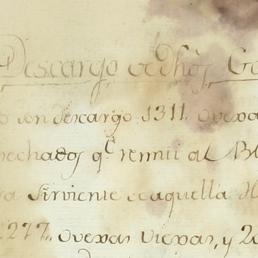 Descargo de dhos Ga
son descargo 1311. ovexas
pechados qe remiti al
sirviente de aquella H
277. ovexas viexas, y 2